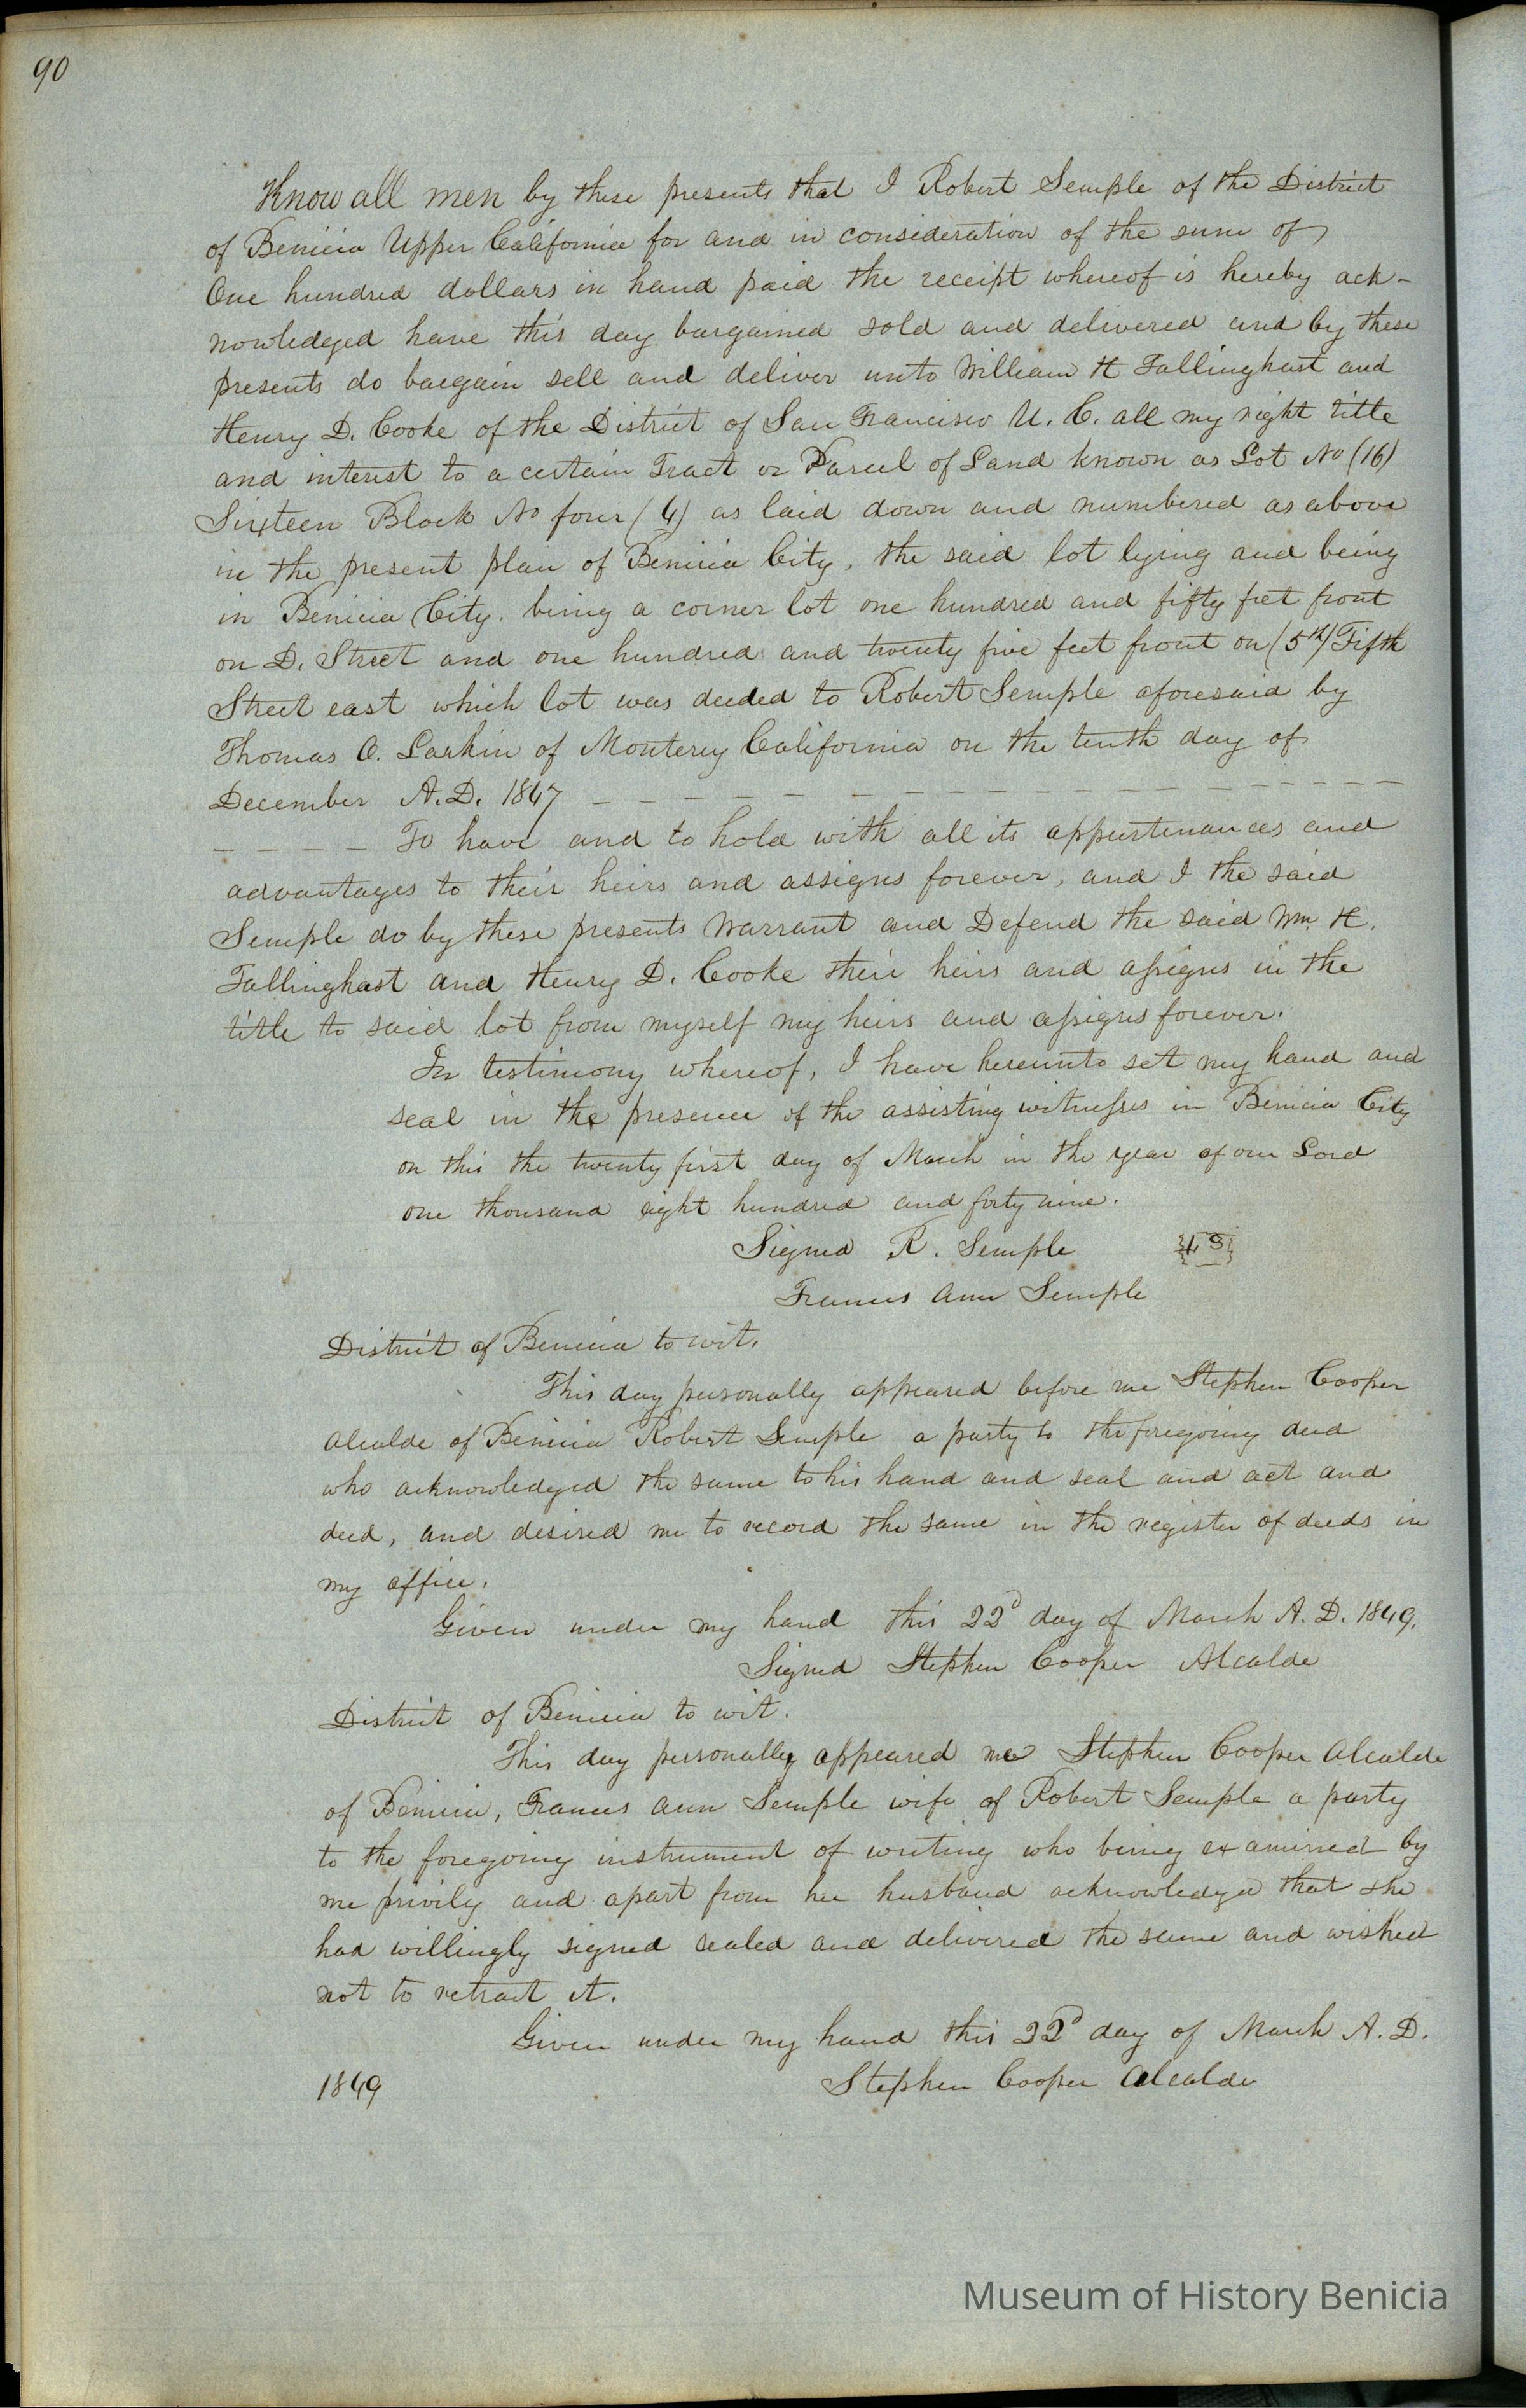 90
Know all men by these presents that I Robert Semple of the District
of Benicia Upper California for and in consideration of the sum of
One hundred dollars in hand paid the receipt whereof is hereby ack-
nowledged have this day bargained sold and delivered and by these
presents do bargain sell and deliver unto William H Tallinghast and
Henry D. Cooke of the District of San Francisco U. C. all my right title
and interest to a certain Tract or Parcel of Land known as Lot No (16)
Sixteen Block No four (4) as laid down and numbered as above
in the present plan of Benicia City, the said lot lying and being
in Benicia City. being a corner lot one hundred and fifty feet front
on D. Street and one hundred and twenty five feet front on (5th) Fifth
Street east which lot was deeded to Robert Semple aforesaid by
Thomas O. Larkin of Monterey California on the tenth day of
December A.D. 1847 — — — — — — — — — — — — — — — —
— — — — To have and to hold with all its appurtenances and
advantages to their heirs and assigns forever, and I the said
Semple do by these presents Warrant and Defend the said Wm. H.
Tallinghast and Henry D. Cooke their heirs and assigns in the
title to said lot from myself my heirs and assigns forever.
In testimony whereof, I have hereunto set my hand and
seal in the presence of the assisting witnesses in Benicia City
on this the twenty first day of March in the year of our Lord
one thousand eight hundred and forty nine.
Signed R. Semple {L S}
Frances Ann Semple
District of Benicia to wit.
This day personally appeared before me Stephen Cooper
Alcalde of Benicia Robert Semple a party to the foregoing deed
who acknowledged the same to his hand and seal and act and
deed, and desired me to record the same in the register of deeds in
my office.
Given under my hand this 22d day of March A. D. 1849.
Signed Stephen Cooper Alcalde
District of Benicia to wit.
This day personally appeared me Stephen Cooper Alcalde
of Benicia, Frances Ann Semple wife of Robert Semple a party
to the foregoing instrument of writing who being examined by
me privily and apart from her husband acknowledged that she
had willingly signed sealed and delivered the same and wished
not to retract it.
Given under my hand this 22d day of March A. D.
1849 Stephen Cooper Alcalde
Museum of History Benicia